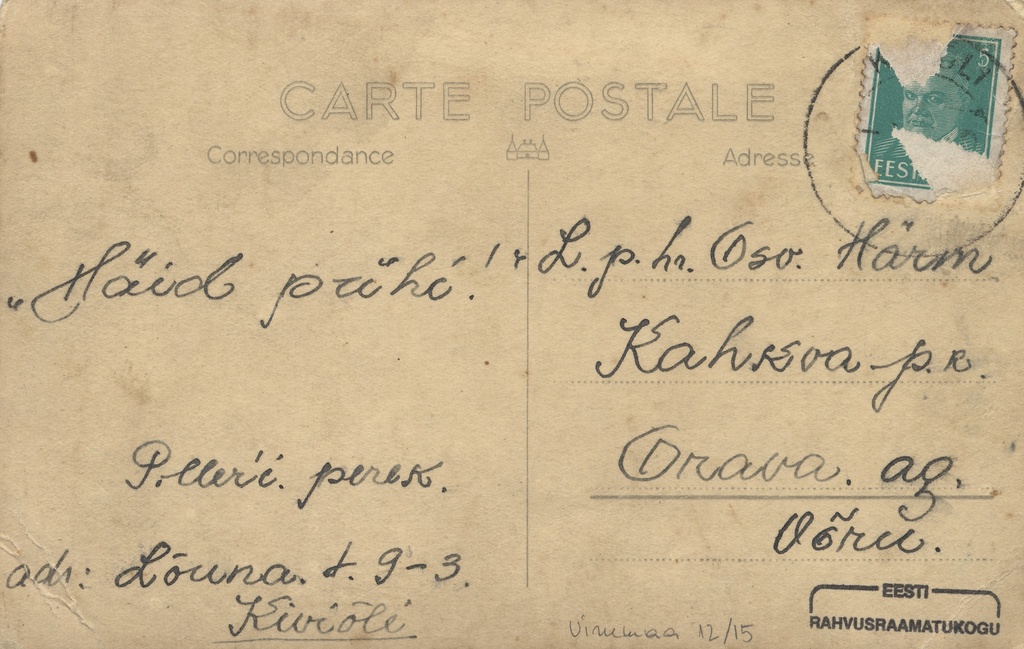 CARTE POSTALE
Correspondance
Adresse
5
EESTI
„Häid pühi!"
P.lleri. perek.
adr: Lõuna. t. 9-3.
Kiviõli
L. p. hr. Osv. Härm
Kahkva p.k.
Orava. ag.
Võru.
Virumaa 12/15
EESTI
RAHVUSRAAMATUKOGU